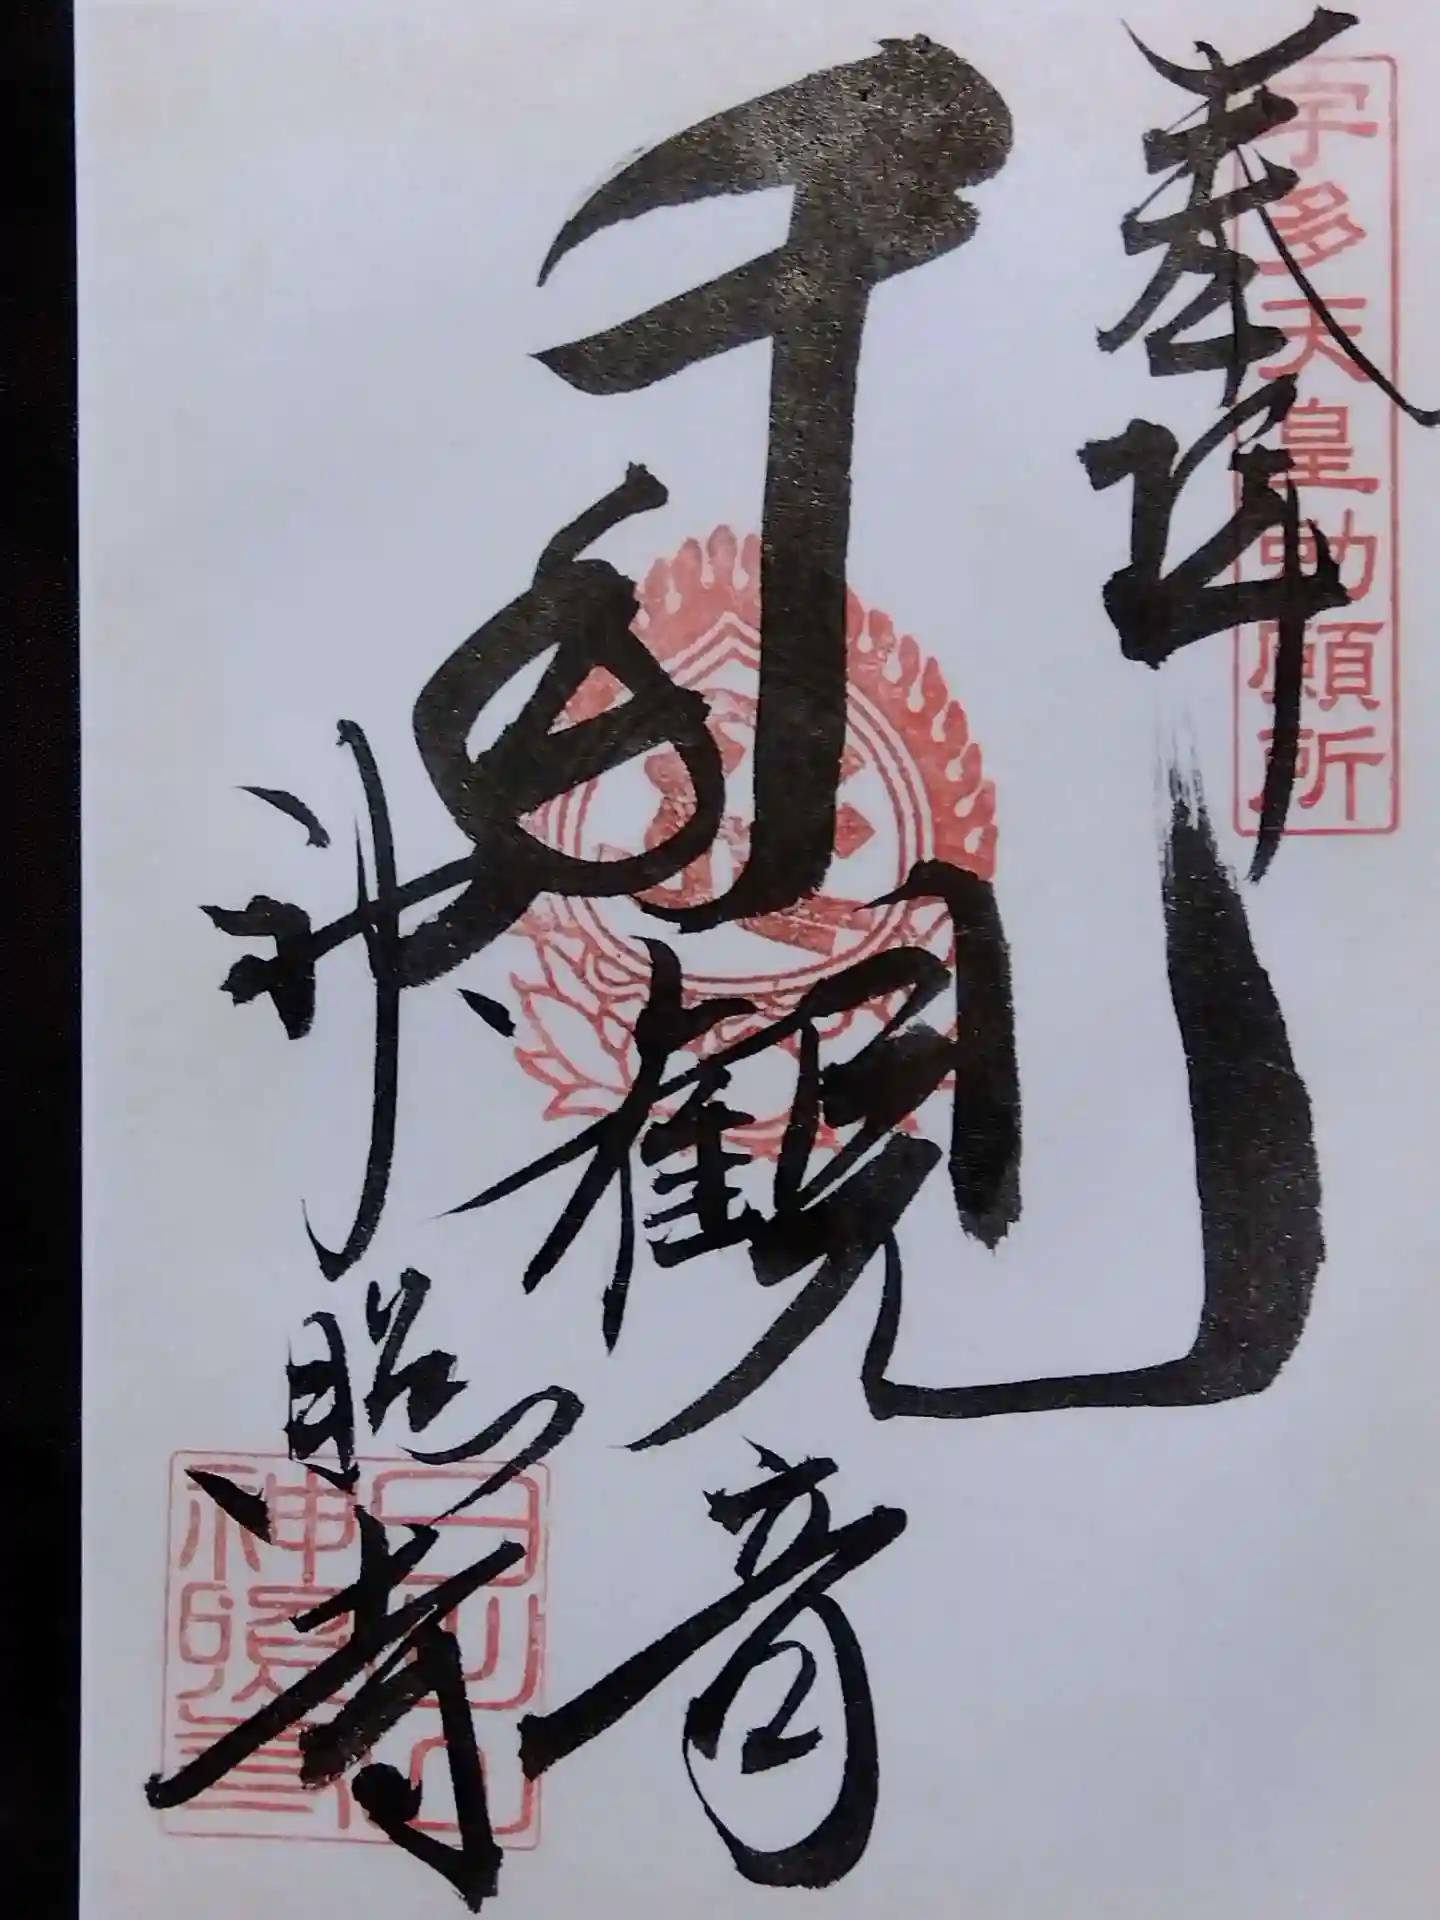 宇多天皇勅願所
奉拝
千手観音
神照寺
日出山
神照寺